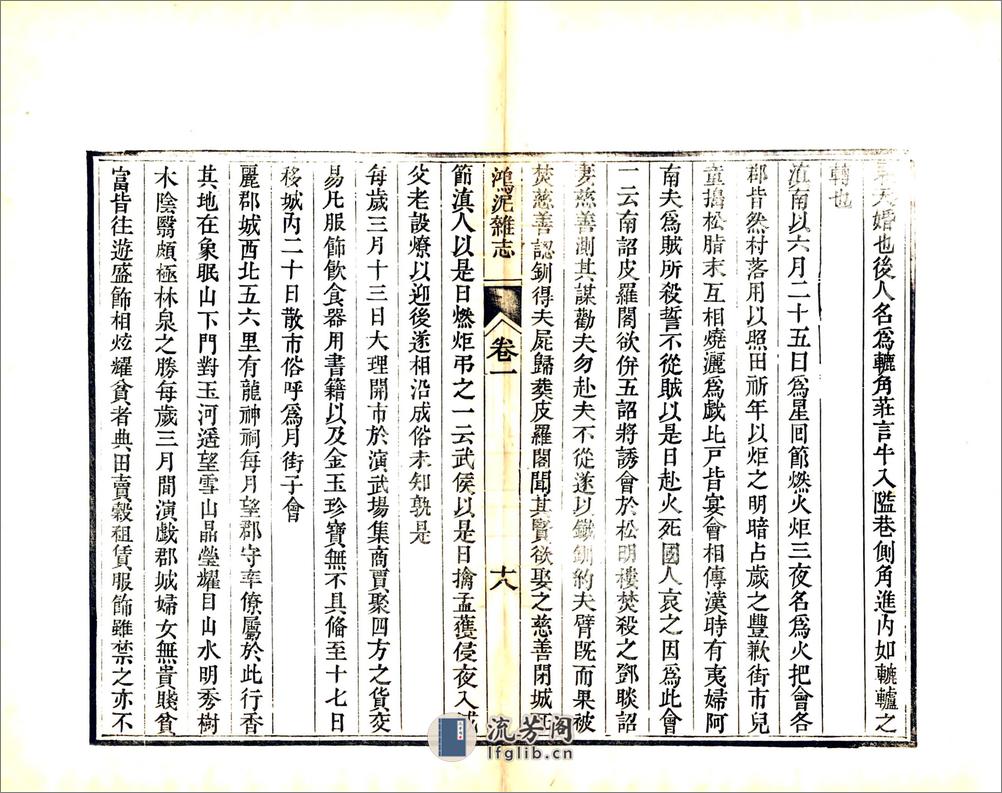 夫婚也後人名爲轆角莊言牛入隘巷側角進内如轆轤之
轉也
滇南以六月二十五日爲星回節燃火炬三夜名爲火把會各
郡皆然村落用以照田祈年以炬之明暗占歲之豐歉街市兒
童搗松脂末互相燒灑爲戲比戸皆宴會相傳漢時有夷婦阿
南夫爲賊所殺誓不從賊以是日赴火死國人哀之因爲此會
一云南詔皮羅閣欲併五詔將誘會於松明樓焚殺之鄧睒詔
妻慈善測其謀勸夫勿赴夫不從遂以鐵釧約夫臂既而果被
焚慈善認釧得夫屍歸葬皮羅閣聞其賢欲娶之慈善閉城
鴻泥雜志 卷一 十八
節滇人以是日燃炬弔之一云武侯以是日擒孟獲侵夜入城
父老設燎以迎後遂相沿成俗未知孰是
每歲三月十三日大理開市於演武場集商賈聚四方之貨交
易凡服飾飲食器用書籍以及金玉珍寶無不具偹至十七日
移城内二十日散市俗呼爲月街子會
麗郡城西北五六里有龍神祠每月望郡守率僚屬於此行香
其地在象眠山下門對玉河遥望雪山晶瑩耀目山水明秀樹
木陰翳頗極林泉之勝每歲三月間演戲郡城婦女無貴賤貧
富皆往遊盛飾相炫耀貧者典田賣穀租賃服飾雖禁之亦不
流芳阁
lfglib.cn